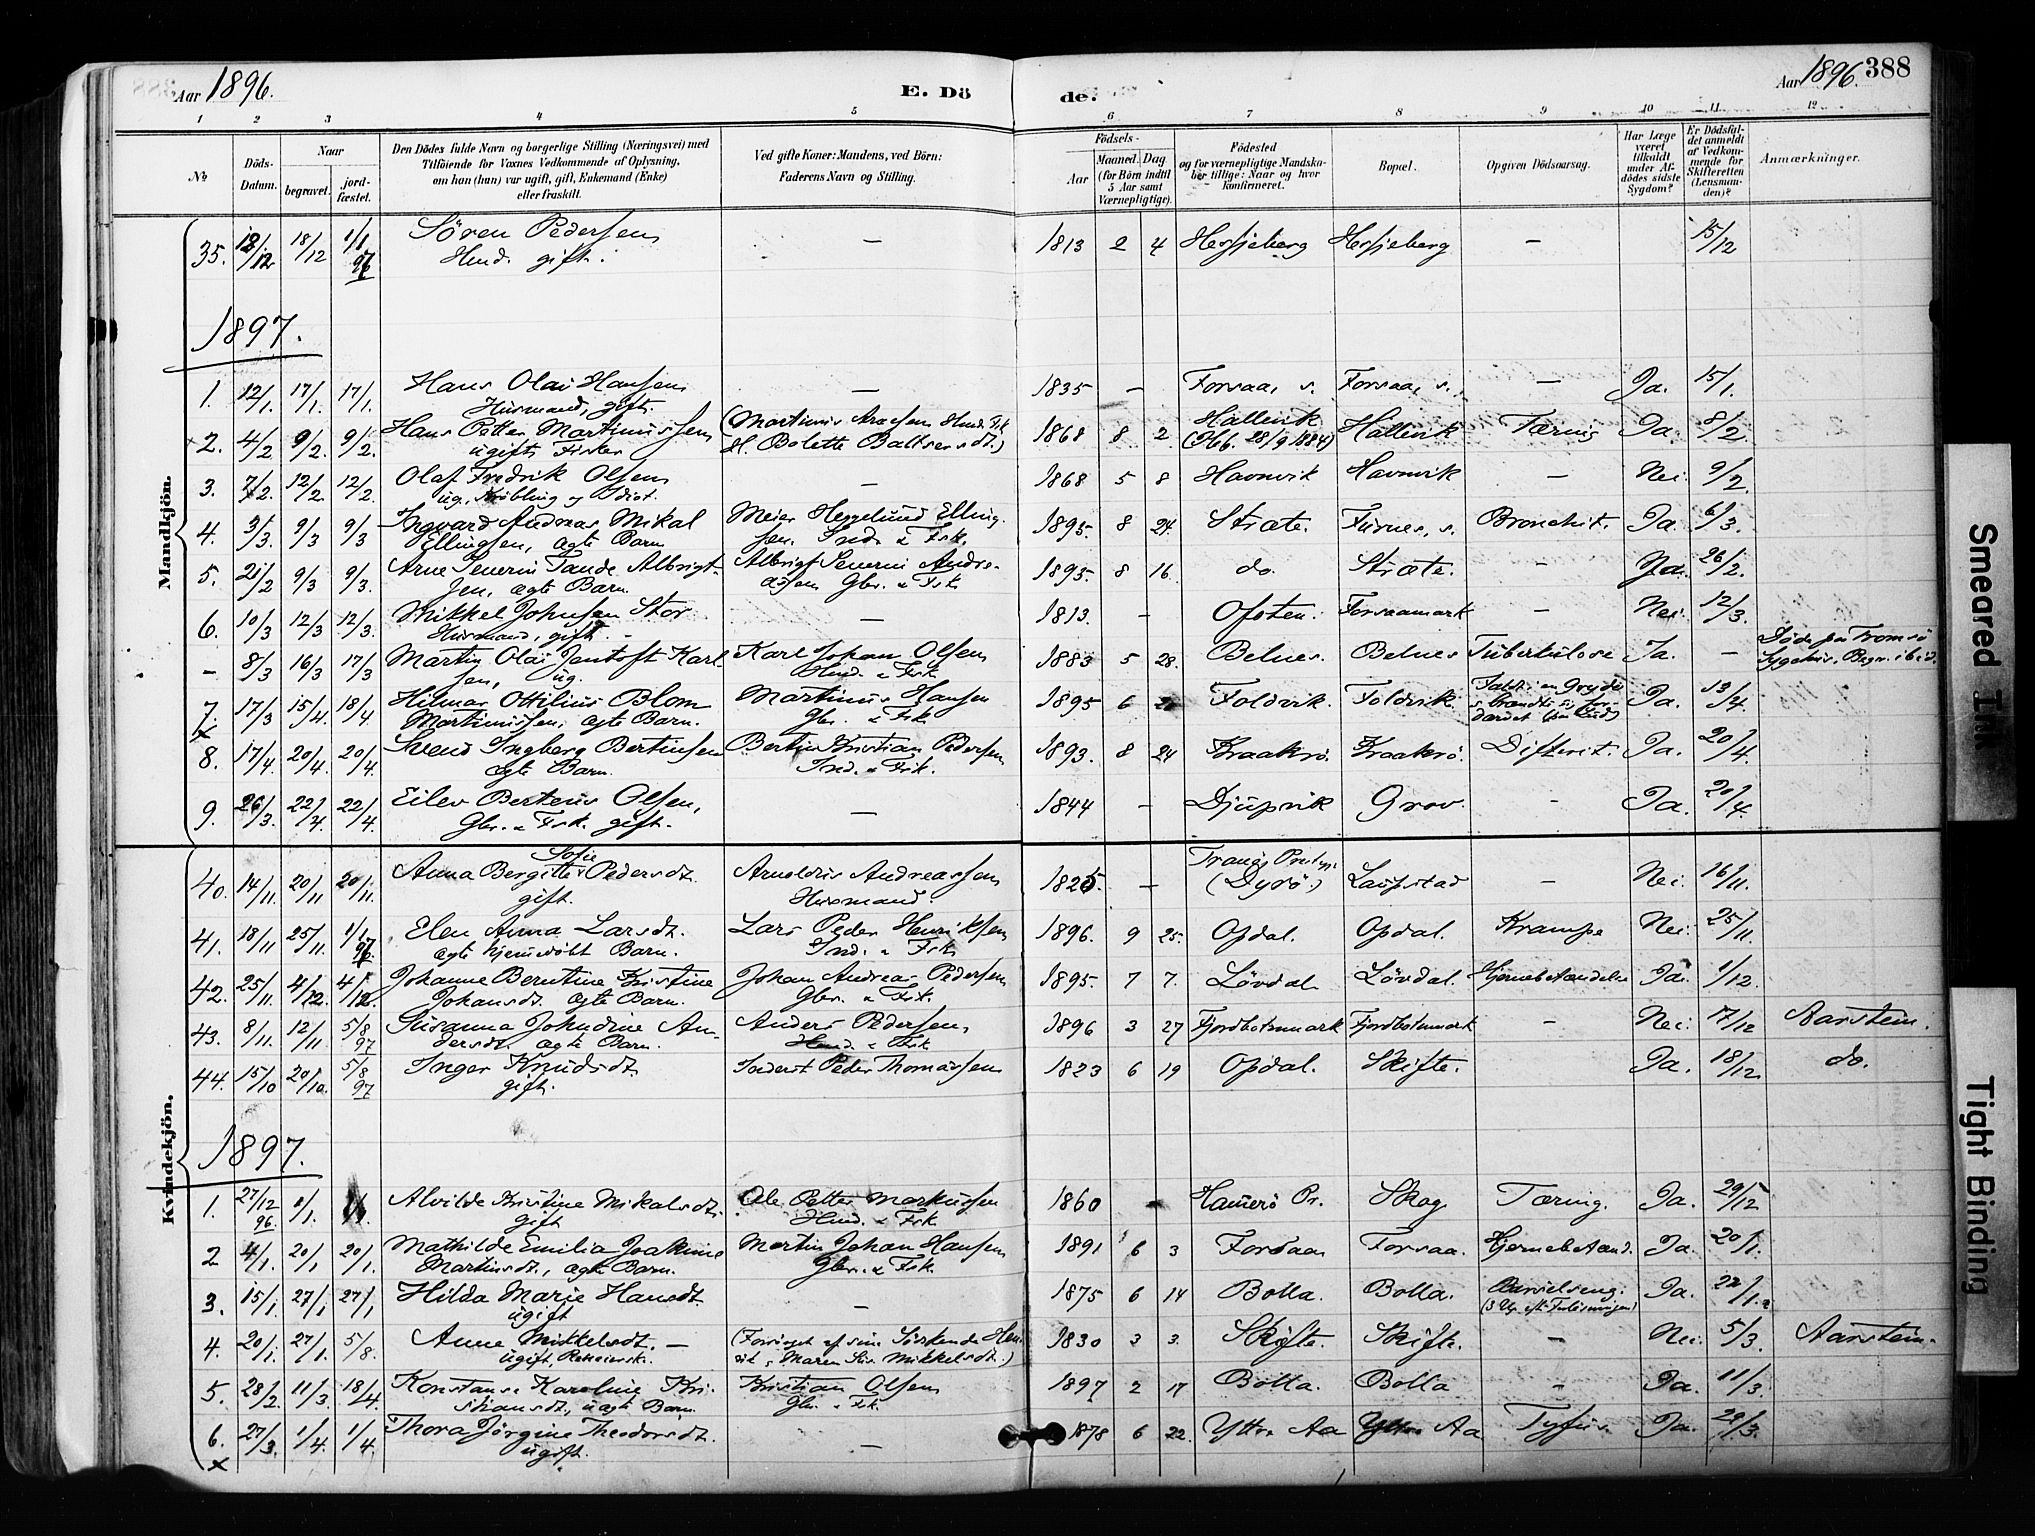 Aar 1896.
E. Dö
de.
Aar 1896.
388
1 2 3 4 5 6 7 8 9 10 11 12
No
Döds-
Datum.
Naar
begravet.
jord-
fæstet.
Den Dödes fulde Navn og borgerlige Stilling (Næringsvei) med
Tilföiende for Voxnes Vedkommende af Oplysning,
om han (hun) var ugift, gift, Enkemand (Enke)
eller fraskilt.
Ved gifte Koner: Mandens, ved Börn:
Faderens Navn og Stilling.
Födsels-
Aar
Maaned. Dag
(for Börn indtil
5 Aar samt
Værnepligtige).
Födested
og for værnepligtige Mandska-
ber tillige: Naar og hvor
konfirmeret.
Bopæl.
Opgiven Dödsaarsag.
Har Læge
været
tilkaldt
under Af-
dödes sidste
Sygdom?
Er Dödsfal-
det anmeldt
af Vedkom-
mende for
Skifteretten
(Lensman-
den)?
Anmærkninger.
Mandkjön.
35. 18/12 1/1 97 Sören Pedersen — 1813 2 4 Hessjeberg Hessjeberg — 15/12
Hmd. gift.
1897.
1. 12/1. 17/1. 17/1. Hans Olai Hansen — 1835 — Forsaa, s. Forsaa, s. — Ja. 15/1.
Husmand, gift.
2. 4/2 9/2. 9/2. Hans Petter Martinussen 1868 8 2 Hallevik Hallevik Tæring Ja. 8/2
ugift, Fisker H. Bolette Baltsersdt.) 28/9 1884)
3. 7/2. 12/2 12/2 Olaf Fredrik Olsen — 1868 5 8 Havnvik Havnvik — Nei. 9/2
ug., Kröbling og Idiot.
4. 3/3. 9/3 9/3 Ingvard Andreas Mikal Meier Heggelund Elling- 1895. 8 24. Stræte. Furnes, s. Bronchit. Ja. 6/3.
Ellingsen, ægte Barn sen. Ind. & Fsk.
5. 21/2 9/3 9/3. Arne Severin Tande Albrigt- Albrigt Severin Andre- 1895. 8 16. do. Stræte. — 26/2.
sen, ægte Barn. asen Gbr. & Fsk
6. 10/3 12/3 12/3. Mikkel Johnsen Stor — 1813. — Ofoten. Forsaamark — Nei. 12/3.
Husmand, gift. —
- 8/3 16/3 17/3 Martin Olai Jentoft Karl- Karl Johan Olsen 1883 5 28. Belnes. Belnes Tuberkulose Ja. — Döde paa Tromsö
sen, ug. Hmd. & Fsk
7. 17/3 15/4. 18/4 Hilmar Ottilius Blom Martinus Hansen 1895 6 Foldvik. Foldvik. Ja. 13/4
x Martinussen, ægte Barn. Gbr. & Fsk
8. 17/4. 20/4. 20/4. Svend Ingberg Bertinsen Bertin Kristian Pedersen 1893. 8 24 Kraakrö. Kraakrö. Difterit. Ja. 20/4.
ægte Barn. Ind. & Fsk.
9. 26/3. 22/4 22/4. Eilev Berteus Olsen, — 1844 — Djupvik Grov — Ja. 20/4.
Gbr. & Fsk. gift.
Kvindekjön.
Sofie
40. 14/11. 20/11 20/11. Anna Bergitte Pedersdt. Arnoldus Andreassen — (Dyrö.) Laupstad — Nei. 16/11.
gift. Husmand.
41. 18/11 25/11. 1/1. 97 Elen Anna Larsdt. Lars Peder Henriksen 1896. 9 25. Opdal. Opdal. Krampe Nei. 25/11.
ægte hjemedöbt Barn. Ind. & Fsk
42. 25/11. 4/12. 4/12. Johanne Berntine Kristine Johan Andreas Pedersen 1895. 7 7. Lövdal Lövdal. Hjernebetændelse Ja. 1/12.
Johansdt. ægte Barn. Gbr. & Fsk.
43. 8/11. 12/11. 5/8 97 Susanna Johndine An- Anders Pedersen, 1896 3 27 Fjordbotnmark Fjordbotnmark — Nei. 17/12 Aarstein.
dersdt. ægte Barn. Hmd. & Fsk
44. 15/10 20/10. 5/8 97 Inger Knudsdt. Inderst Peder Thomassen 1823 6 19 Opdal. Skifte. Ja. 18/12 do.
gift.
1897.
1. 27/12 96. Alvilde Kristine Mikalsdt. Ole Petter Markussen 1860 Hamerö Pr. Skog Tæring. Ja. 29/12
gift Hmd. & Fsk
2 4/1. 20/1 20/1. Mathilde Emilia Joakime Martin Johan Hansen 1891 6 3 Forsaa Forsaa. Hjernebetænd. Ja. 20/1.
Martinsdt., ægte Barn. Gbr. & Fsk.
3. 15/1. 27/1 27/1 Hilda Marie Hansdt. — 1875 6 14 Bolla. Bolla. Barselseng. Ja. 22/1.
ugift
4. 20/1. 27/1. 5/8. Anne Mikkelsdt. — (Forsörget af sine Söskende 1830 3 3. Skifte. Skifte. — Nei. 5/3. Aarstein.
ugift, Maren Mikkelsdt.)
5. 28/2 11/3. 18/4 Konstanse Karoline Kri- Kristian Olsen 1897 2 17 Bolla. Bolla — Ja. 11/3.
stiansdt., uægte Barn. Gbr. & Fsk.
6. 27/3. 1/4. 1/4. Thora Jörgine Theodorsdt. — 1878 6 22. Yttre Aa Yttre Aa Tyfus. Ja. 29/3.
x ugift.
Smeared Ink
Tight Binding